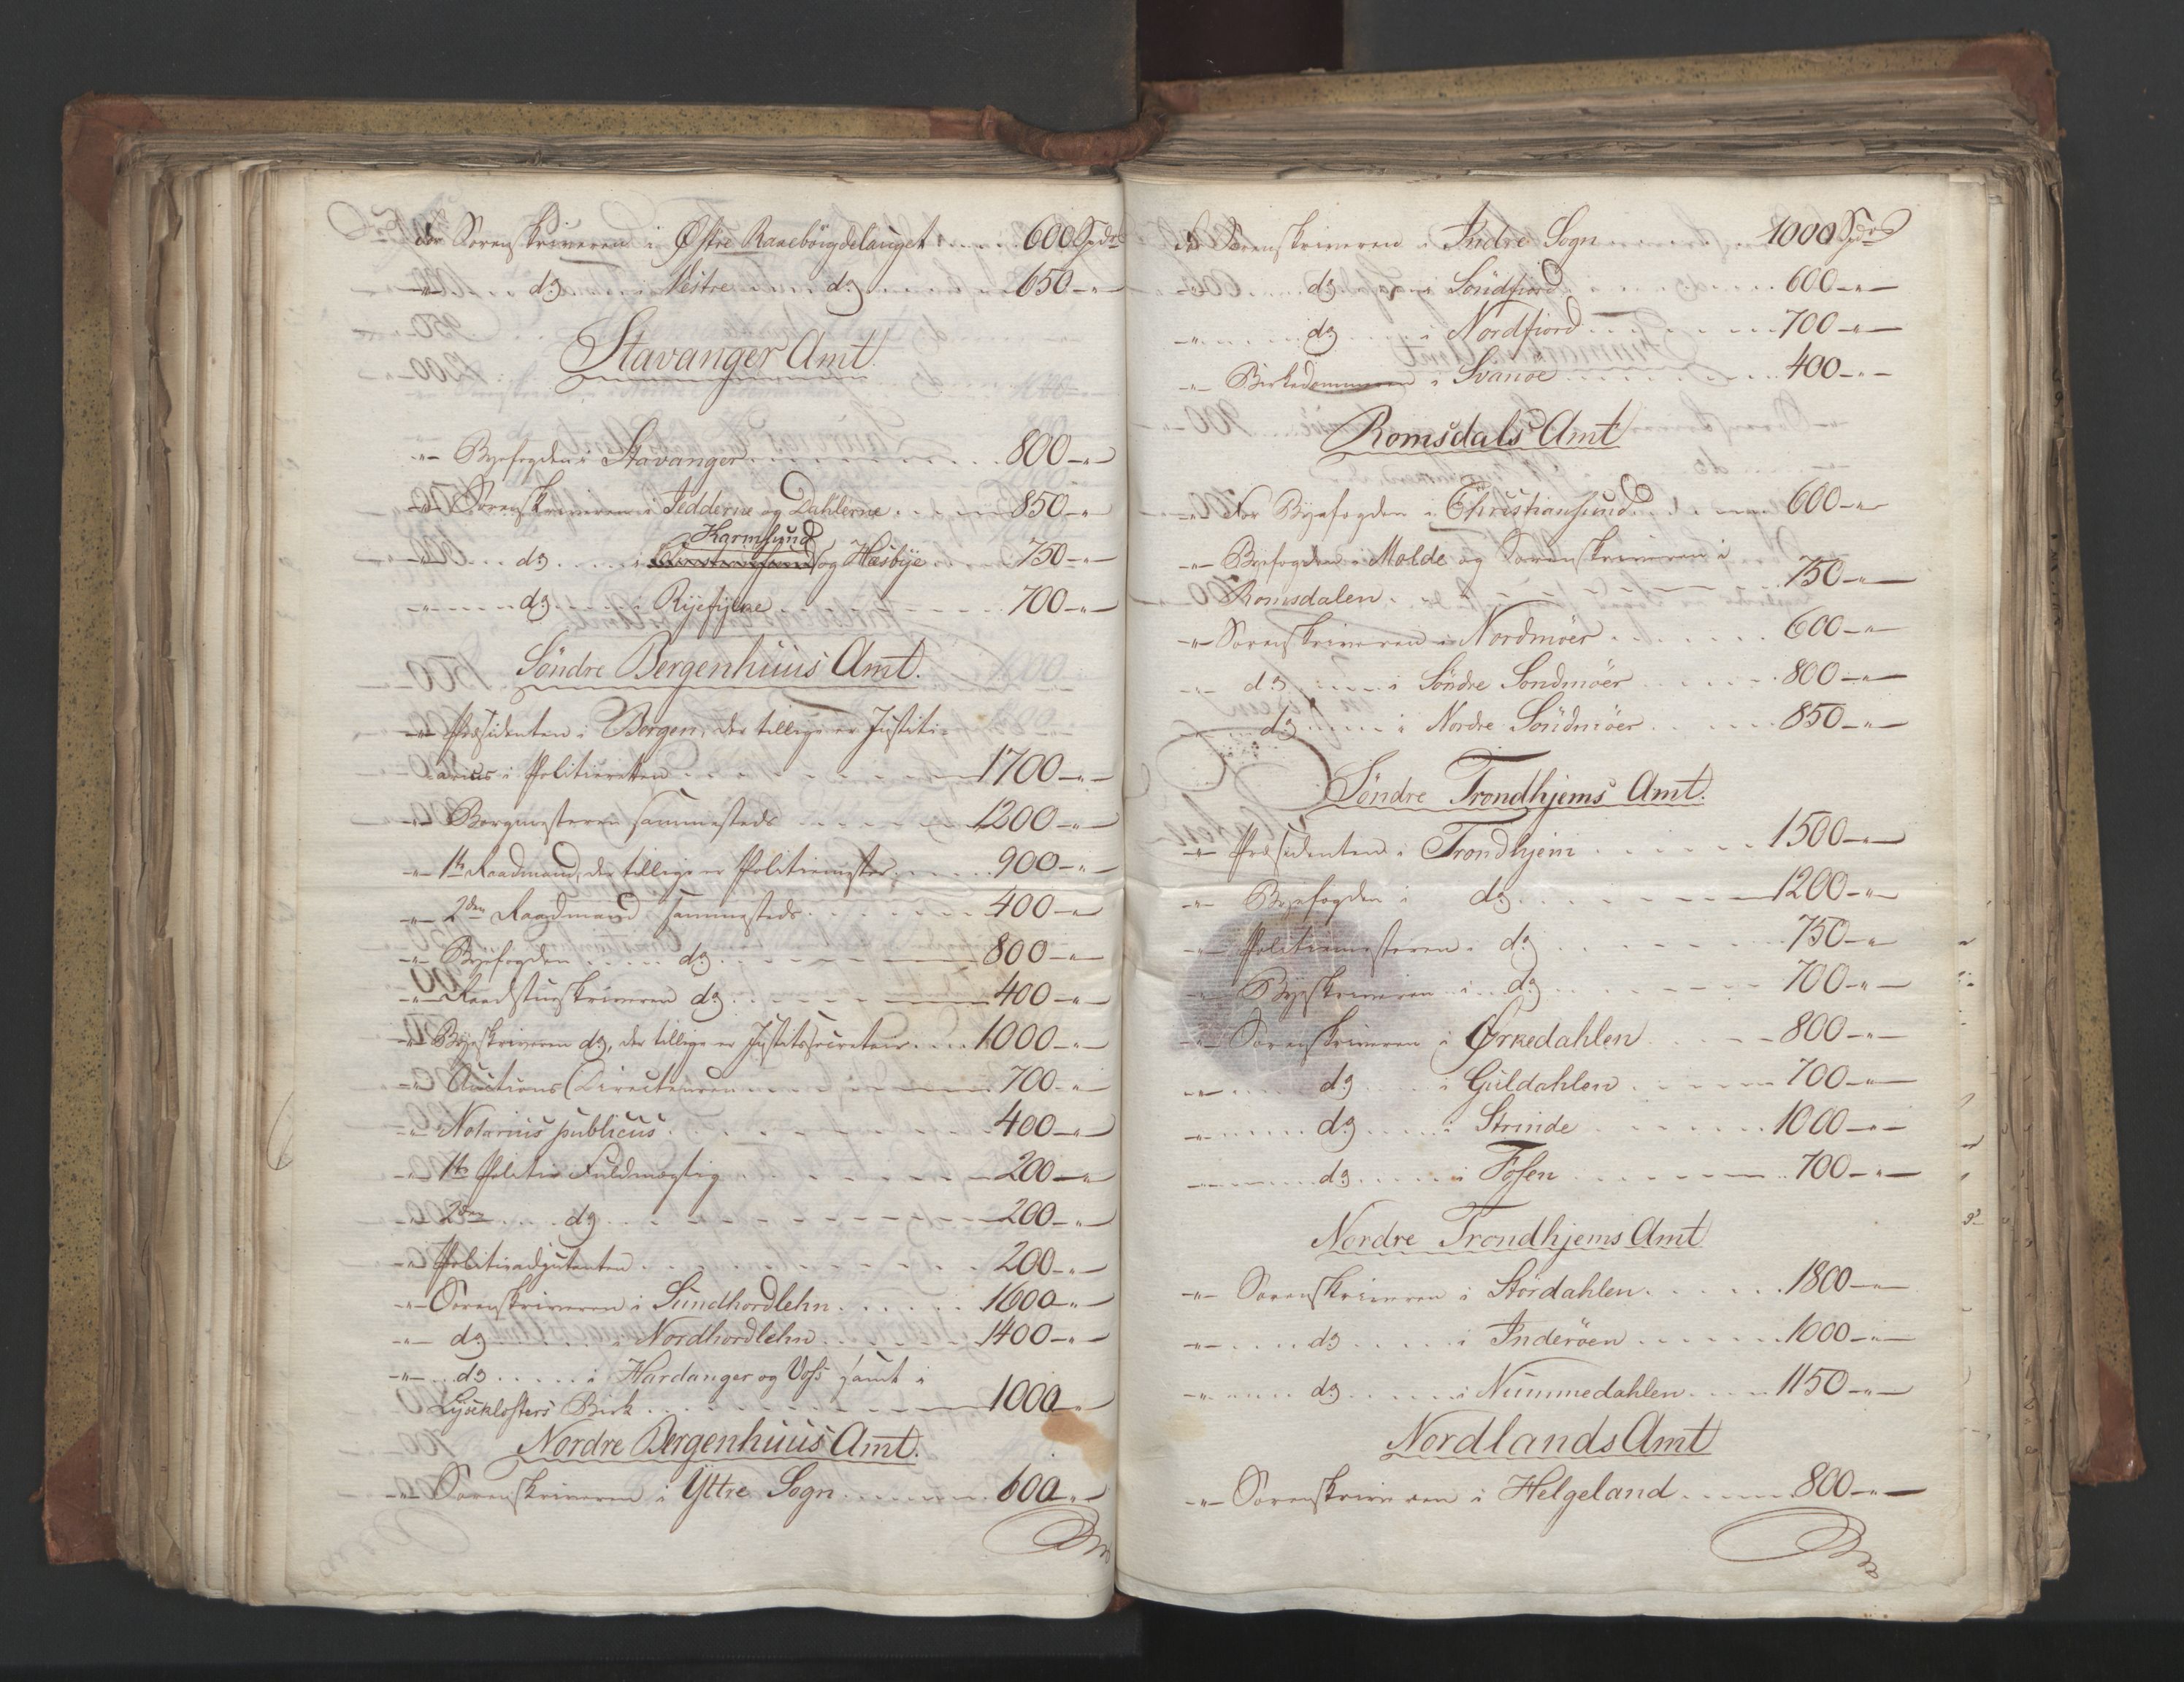 for Sorenskriveren i Østre Raaebøigdelauget . . . . 600 Spdr
-"- d:o i Vestre d:o . . . . 650 -"-
Stavanger Amt.
-"- Byefogden i Stavanger . . . . 800 -"-
-"- Sorenskriveren i Jedderne og Dahlerne . . . . 850 -"-
Karmsund
-"- d:o . . . . i og Hæsbye 750 -"-
-"- d:o . . . . i Ryefylke . . . . 700 -"-
Søndre Bergenhuus Amt.
-"- Præsidenten i Bergen, der tillige er Justiti-
arius i Politieretten . . . . 1700 -"-
-"- Borgmesteren sammesteds . . . . 1200 -"-
-"- 1ste Raadmand, der tillige er Politiemester . . . . 900 -"-
-"- 2den Raadmand sammesteds . . . . 400 -"-
-"- Byefogden . . . . d:o . . . . 800 -"-
-"- Raadstueskriveren d:o . . . . 400 -"-
-"- Byeskriveren d:o, der tillige er Justitssecretair . . . . 1000 -"-
-"- Auctions Directeuren . . . . 700 -"-
-"- Notarius publicus . . . . 400 -"-
-"- 1ste Politie Fuldmægtig . . . . 200 -"-
-"- 2den . . . . d:o . . . . 200 -"-
-"- Politieadjutanten . . . . 200 -"-
-"- Sorenskriveren i Sundhordlehn . . . . 1600 -"-
-"- d:o . . . . i Nordhordlehn . . . . 1400 -"-
-"- d:o . . . . i Hardanger og Voss samt i
Lyseklosters Birk . . . . 1000 -"-
Nordre Bergenhuus Amt.
-"- Sorenskriveren i Yttre Sogn . . . . 600 -"-
for Sorenskriveren i Indre Sogn . . . . 1000 Spdr
-"- d:o . . . . i Søndfiord . . . . 600 -"-
-"- d:o . . . . i Nordfiord . . . . 700 -"-
-"- Birkedommeren i Svanøe . . . . 400 -"-
Romsdals Amt
-"- For Byefogden i Christiansund . . . . 600 -"-
-"- Byefogden i Molde og Sorenskriveren i
Romsdalen . . . . 750 -"-
-"- Sorenskriveren i Nordmøer . . . . 600 -"-
-"- d:o . . . . i Søndre Søndmøer . . . . 800 -"-
-"- d:o . . . . i Nordre Søndmøer . . . . 850 -"-
Søndre Trondhjems Amt.
-"- Præsidenten i Trondhjem . . . . 1500 -"-
-"- Byefogden i d:o . . . . 1200 -"-
-"- Politiemesteren i d:o . . . . 750 -"-
-"- Byeskriveren i d:o . . . . 700 -"-
-"- Sorenskriveren i Ørkedahlen . . . . 800 -"-
-"- d:o . . . . i Guldahlen . . . . 700 -"-
-"- d:o . . . . i Strinde . . . . 1000 -"-
-"- d:o . . . . i Fosen . . . . 700 -"-
Nordre Trondhjems Amt
-"- Sorenskriveren i Størdahlen . . . . 1800 -"-
-"- d:o . . . . i Inderøen . . . . 1000 -"-
-"- d:o . . . . i Nummedahlen . . . . 1150 -"-
Nordlands Amt
-"- Sorenskriveren i Helgeland . . . . 800 -"-